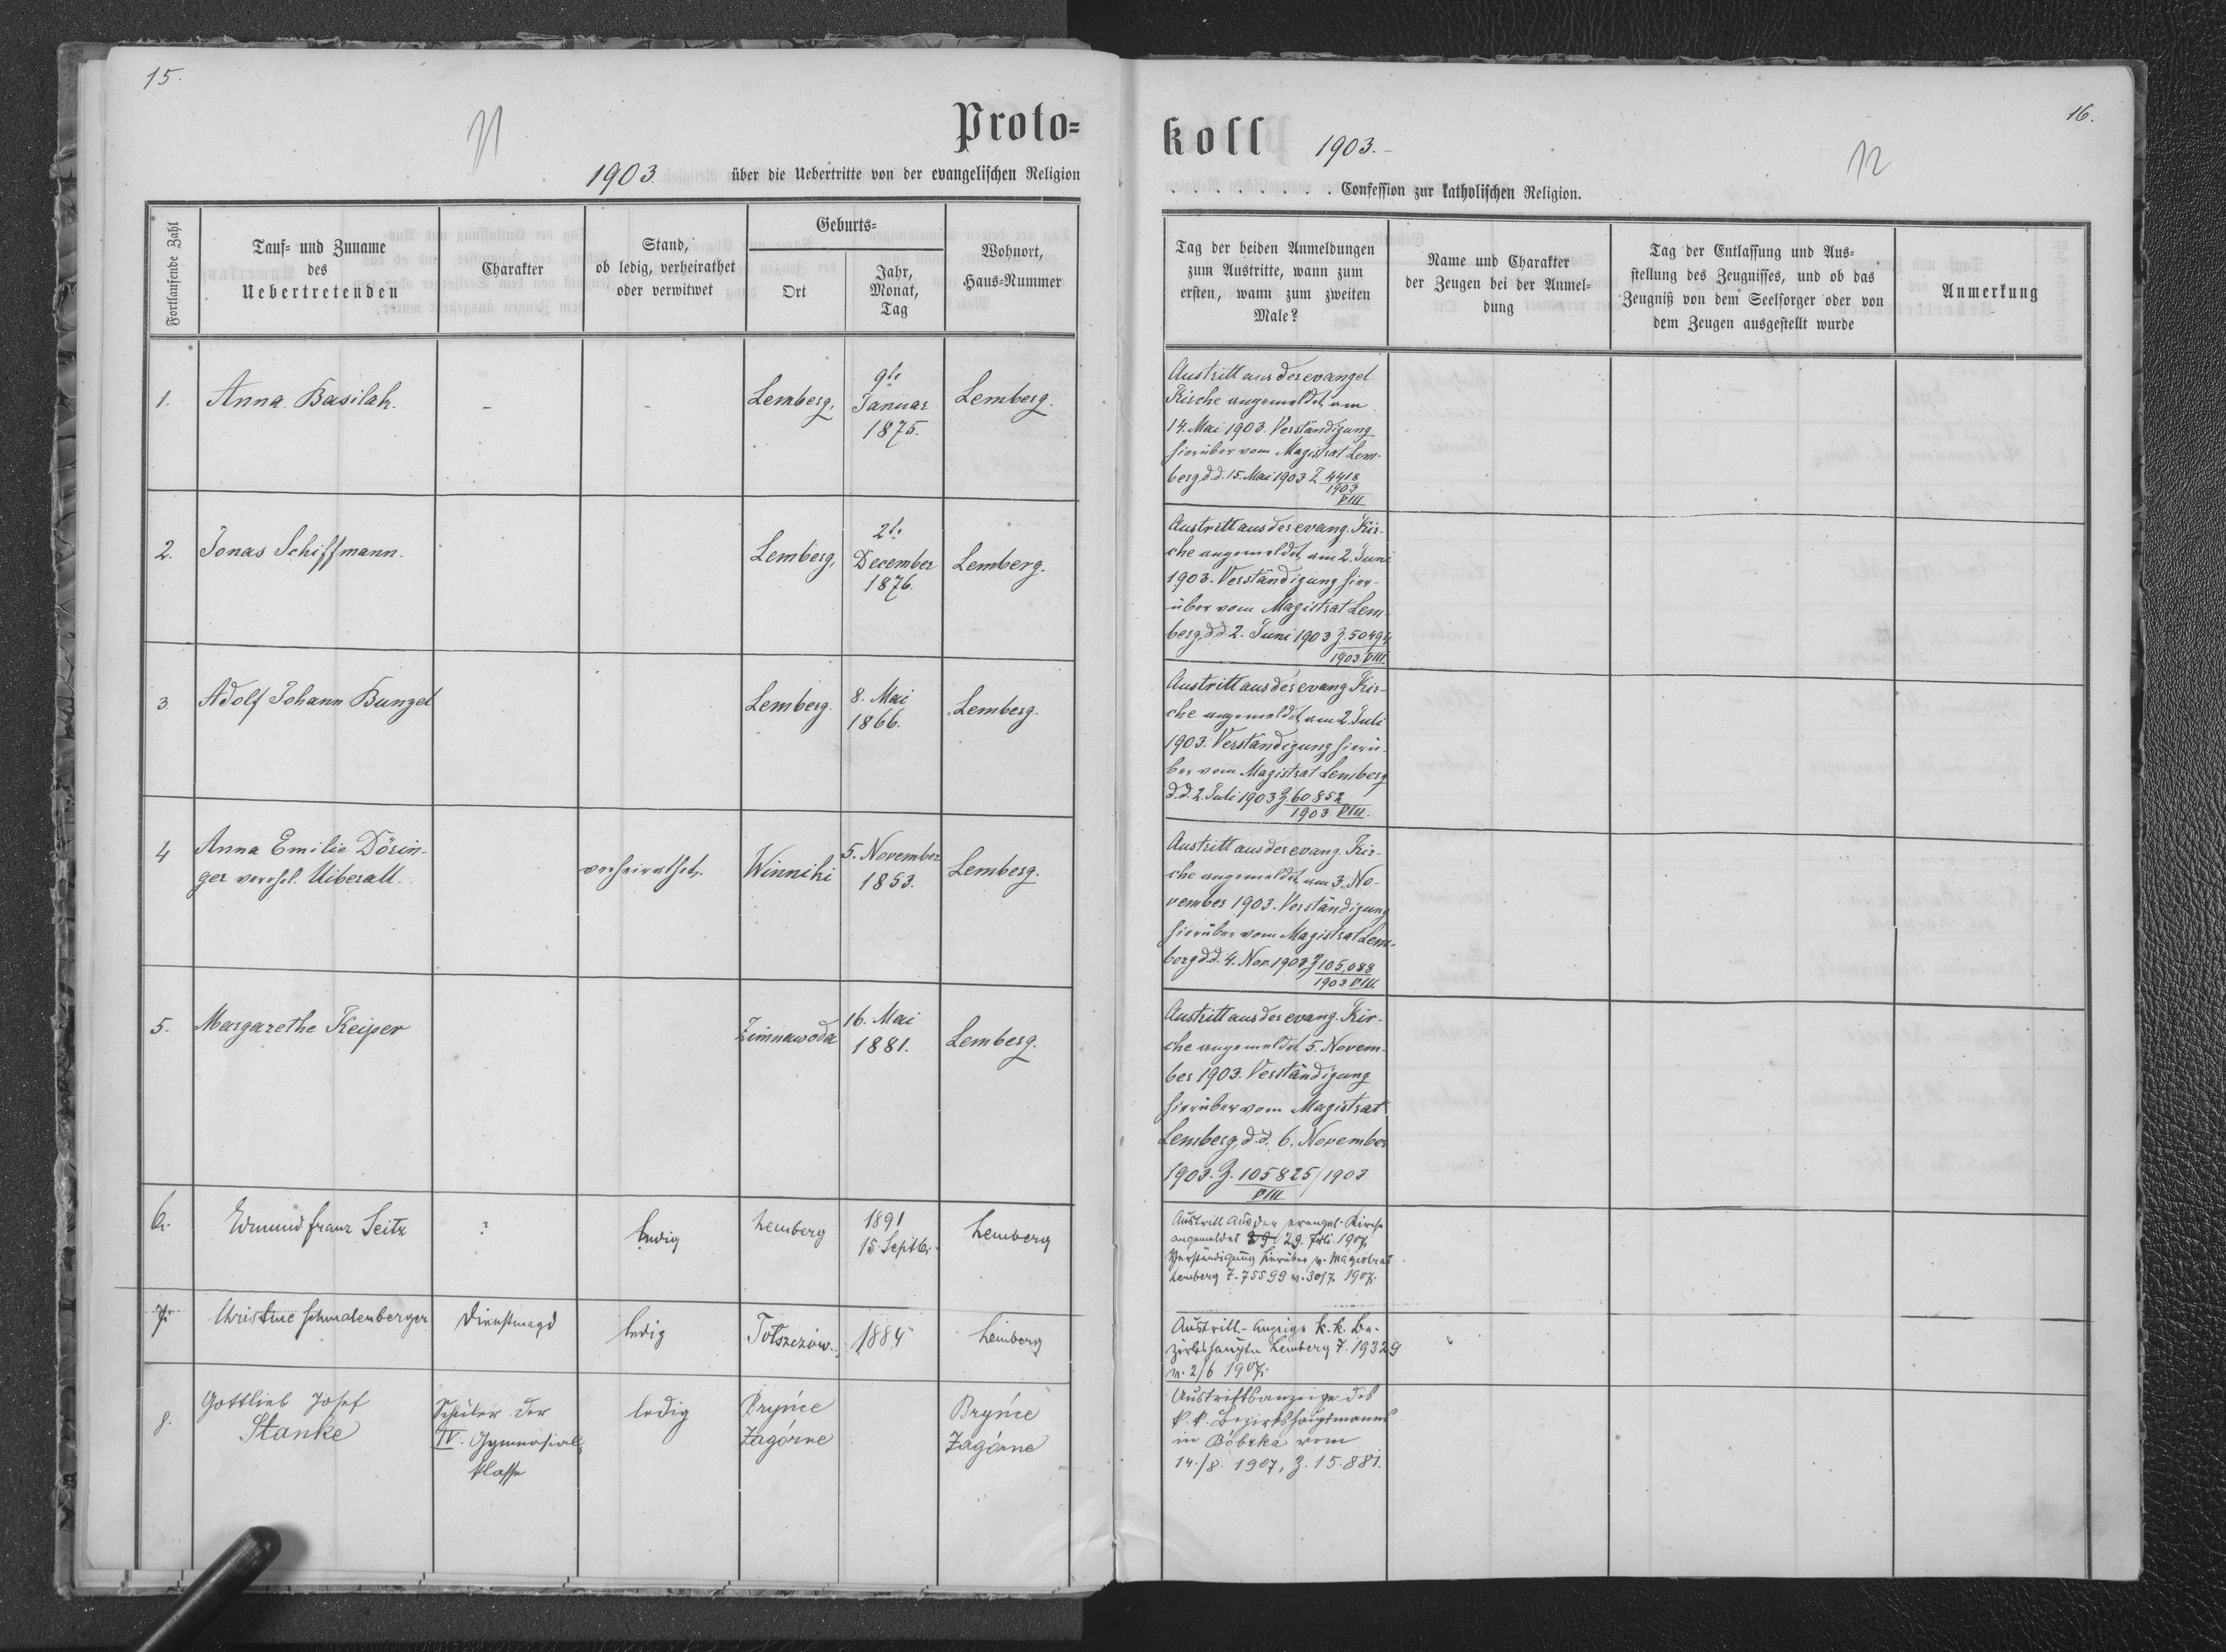 15.
11
Proto=
1903. über die Uebertritte von der evangelischen Religion
Fortlaufende Zahl
Tauf= und Zuname
des
Uebertretenden
Charakter
Stand,
ob ledig, verheirathet
oder verwitwet
Geburts=
Ort
Jahr,
Monat,
Tag
Wohnort,
Haus=Nummer
1. Anna Basilak. - - Lemberg, 9te Januar 1875. Lemberg.
2. Jonas Schiffmann. Lemberg, 2te December 1876. Lemberg.
3. Adolf Johann Bunzel Lemberg. 8. Mai 1866. Lemberg.
4 Anna Emilie Dörin-
ger verehel. Uiberall. verheirathet. Winniki 5. November 1853. Lemberg.
5. Margarethe Keiper Zimnawoda 16. Mai 1881. Lemberg.
6. Edmund Franz Seitz ? ledig Lemberg 1891 15. Septbr. Lemberg
7. Christine Schmalenberger Dienstmagd ledig Tołszczów. 1884 Lemberg
8. Gottlieb Josef
Stanke
Schüler der
IV. Gymnasial-
klasse
ledig
Bryńce
Zagórne
Bryńce
Zagórne
16.
12
koll 1903.-
. . . . . . . . . Confession zur katholischen Religion.
Tag der beiden Anmeldungen
zum Austritte, wann zum
ersten, wann zum zweiten
Male?
Name und Charakter
der Zeugen bei der Anmel=
dung
Tag der Entlassung und Aus=
stellung des Zeugnisses, und ob das
Zeugniß von dem Seelsorger oder von
dem Zeugen ausgestellt wurde
Anmerkung
Austritt aus der evangel.
Kirche angemeldet am
14. Mai 1903. Verständigung
hierüber vom Magistrat Lem-
berg, d.d. 15. Mai 1903 Z 4418
1903
VIII
Austritt aus der evang. Kir-
che angemeldet am 2. Juni
1903. Verständigung hier-
über vom Magistrat Lem-
berg, d.d 2. Juni 1903 Z. 50494
1903. VIII.
Austritt aus der evang. Kir-
che angemeldet am 2. Juli
1903. Verständigung hierü-
ber vom Magistrat Lemberg
d.d. 2. Juli 1903 Z. 60852
1903 VIII.
Austritt aus der evang. Kir-
che angemeldet am 3. No-
vember 1903. Verständigung
hierüber vom Magistrat Lem-
berg d.d. 4. Nov. 1903 Z 105,088
1903 VIII.
Austritt aus der evang. Kir-
che angemeldet 5. Novem-
ber 1903. Verständigung
hierüber vom Magistrat
Lemberg, d.d. 6. November
1903. Z. 105825/1903
VIII
Austritt aus der evangel. Kirche
angemeldet 29. Juli 1907.
Verständigung hierüber v. Magistrat
Lemberg Z. 75599 v. 30/7. 1907.
Austritt-Anzeige k.k. Be-
zirkshauptm Lemberg Z. 19329
v. 2/6 1907.
Austrittsanzeige des
k. k. Bezirkshauptmanns
in Bóbrka vom
14./8. 1907, Z. 15.881.